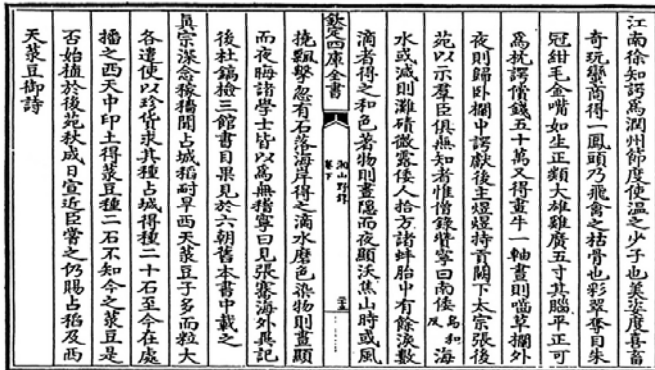 江南徐知諤為潤州節度使溫之少子也美姿度喜畜
奇玩蠻商得一鳳頭乃飛禽之枯骨也彩翠奪目朱
冠紺毛金嘴如生正類大雄雞廣五寸其腦平正可
為枕諤償錢五十萬又得畫牛一軸晝則囓草欄外
夜則歸臥欄中諤獻後主煜煜持貢闕下太宗張後
苑以示羣臣俱無知者惟僧錄贊寧曰南倭烏和反海
水或減則灘磧微露倭人拾方諸蚌胎中有餘淚數
滴者得之和色著物則晝隱而夜顯沃焦山時或風
欽定四庫全書
湘山野錄
卷下
撓飄擊忽有石落海岸得之滴水磨色染物則晝顯
而夜晦諸學士皆以為無稽寧曰見張騫海外異記
後杜鎬檢三館書目果見於六朝舊本書中載之
真宗深念稼穡聞占城稻耐旱西天菉豆子多而粒大
各遣使以珍貨求其種占城得種二十石至今在處
播之西天中印土得菉豆種二石不知今之菉豆是
否始植於後苑秋成日宣近臣嘗之仍賜占稻及西
天菉豆御詩